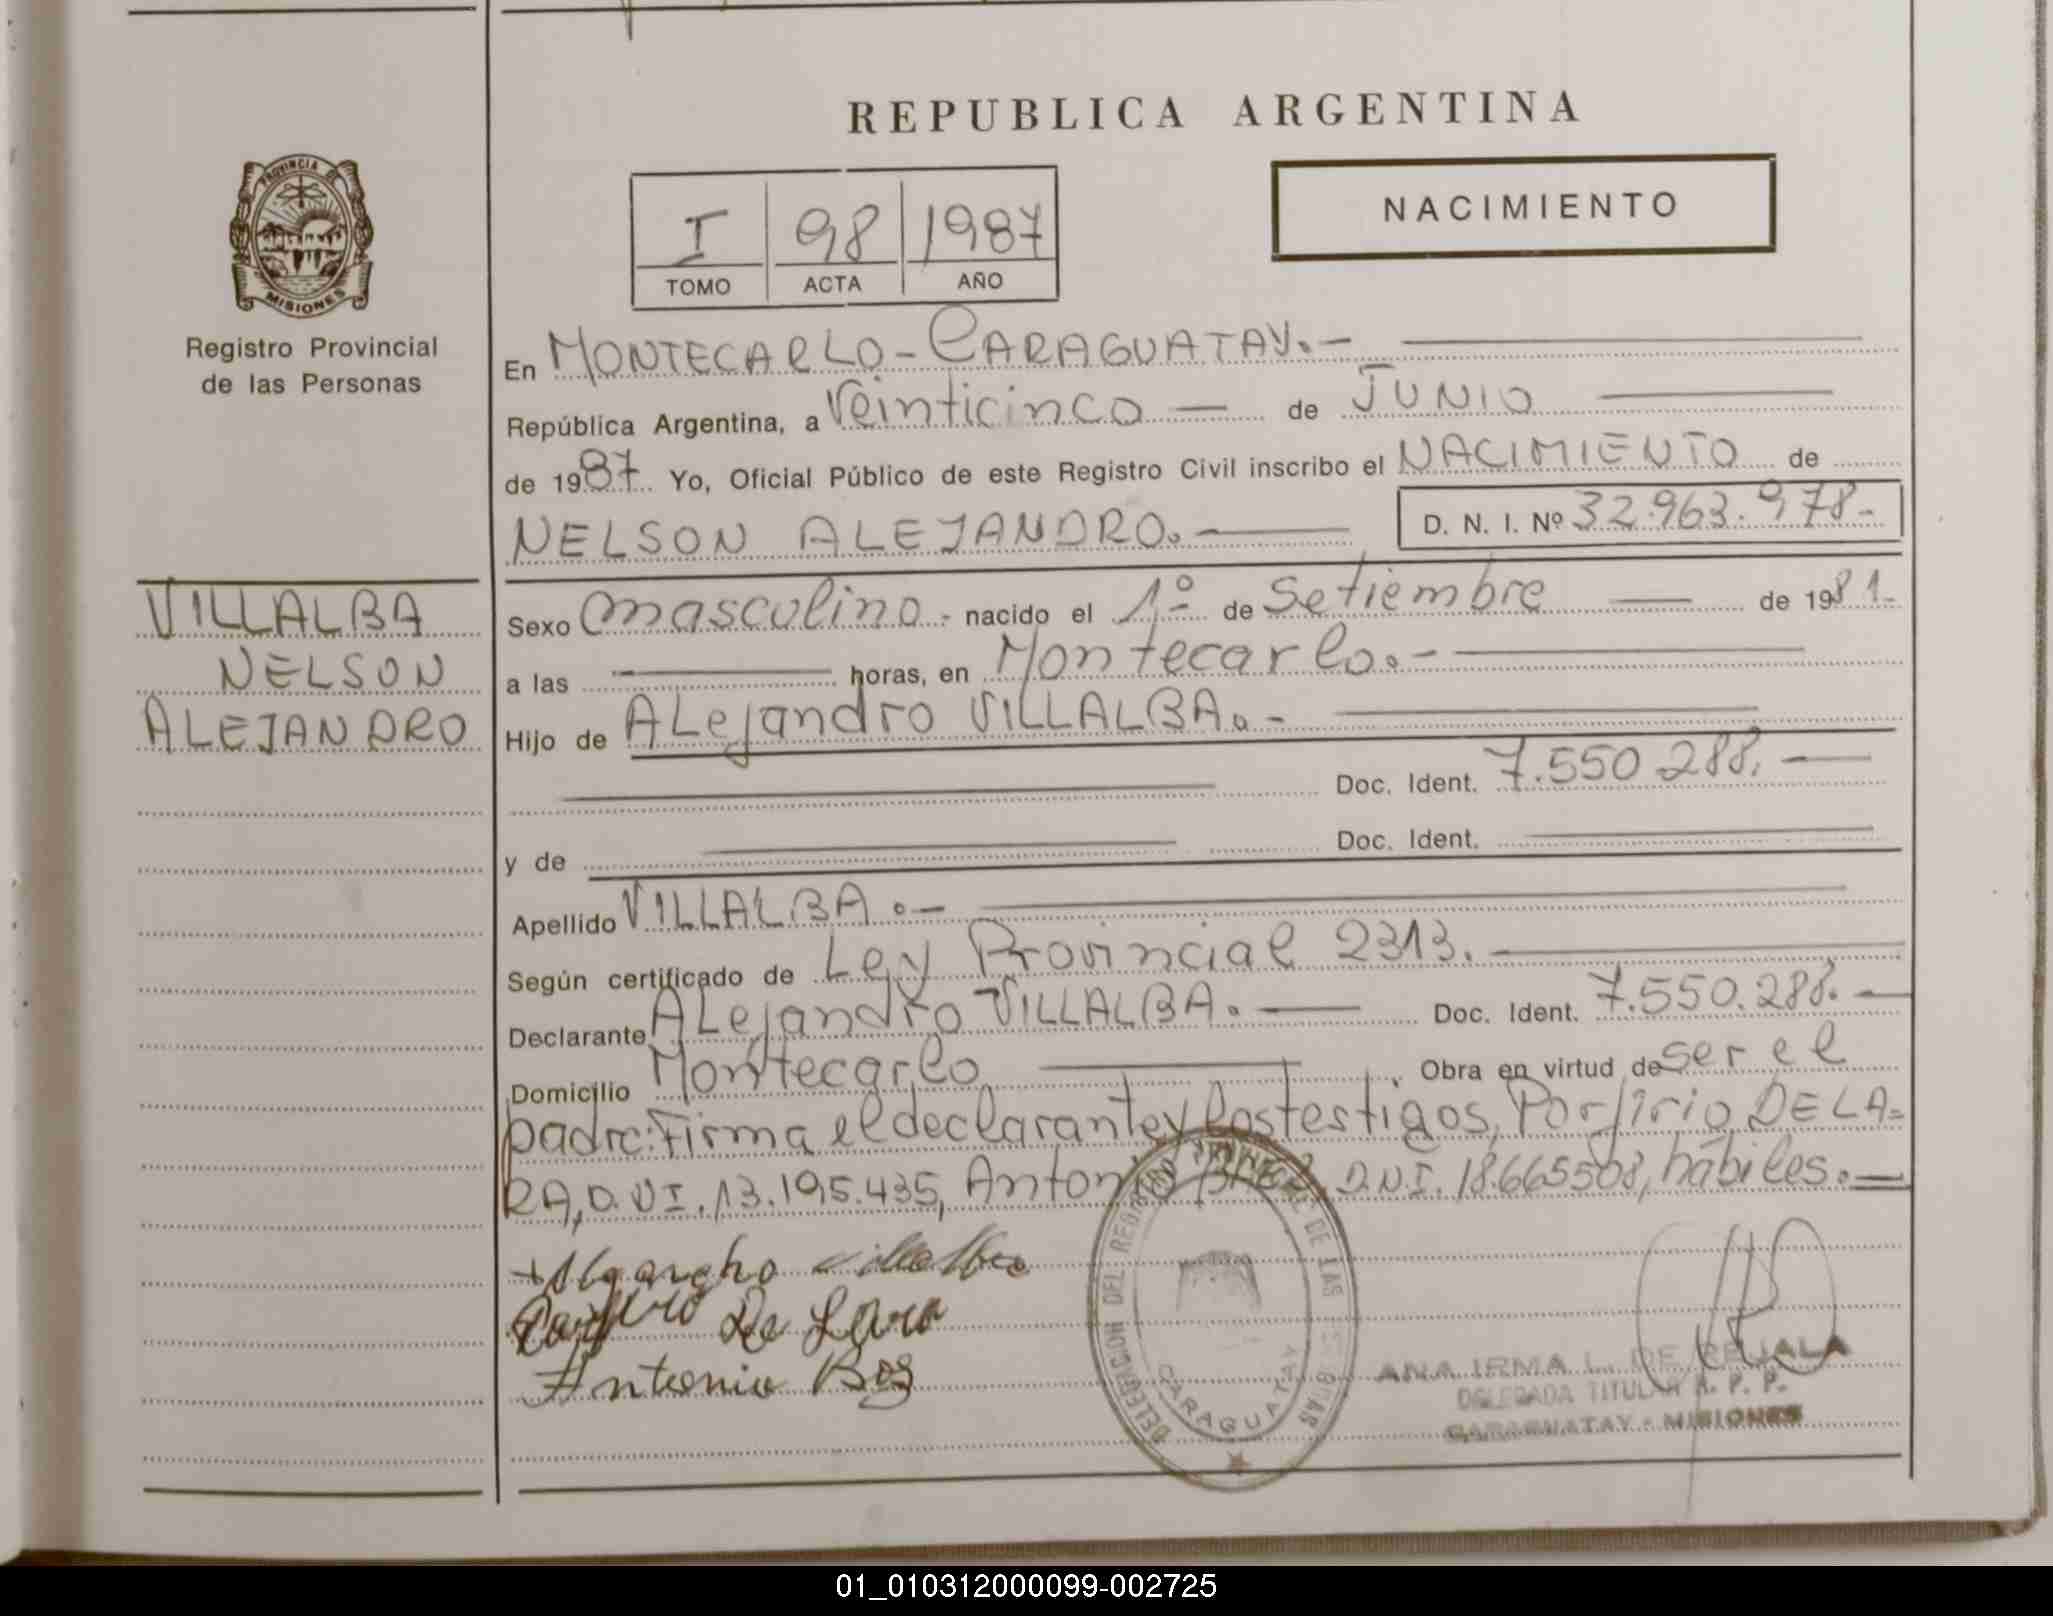 REPUBLICA ARGENTINA
PROVINCIA DE
MISIONES
Registro Provincial
de las Personas
I 98 1987
TOMO ACTA AÑO
NACIMIENTO
En MONTECARLO - CARAGUATAY.-
República Argentina, a Veinticinco — de JUNIO
de 1987 Yo, Oficial Público de este Registro Civil inscribo el NACIMIENTO de
NELSON ALEJANDRO.- D. N. I. Nº 32.963.978.-
VILLALBA
NELSON
ALEJANDRO
Sexo masculino.- nacido el 1º de Setiembre — de 1981.-
a las — horas, en Montecarlo.-
Hijo de ALejandro VILLALBA.-
Doc. Ident. 7.550 288.-
y de Doc. Ident.
Apellido VILLALBA.-
Según certificado de Ley Provincial 2313.-
Declarante ALejandro VILLALBA.- Doc. Ident. 7.550.288.-
Domicilio Montecarlo , Obra en virtud de ser el
padre: Firma el declarante y los testigos, Porfirio DE LA=
RA, D.NI. 13.195.435, Antonio D.N.I. 18.665508, hábiles.-
Villalba
De Lara
Antonio
DELEGACION DEL REGISTRO PROVINCIAL DE LAS PERSONAS
CARAGUATAY
ANA IRMA L. DE REJALA
DELEGADA TITULAR R. P. P.
CARAGUATAY - MISIONES
01_010312000099-002725